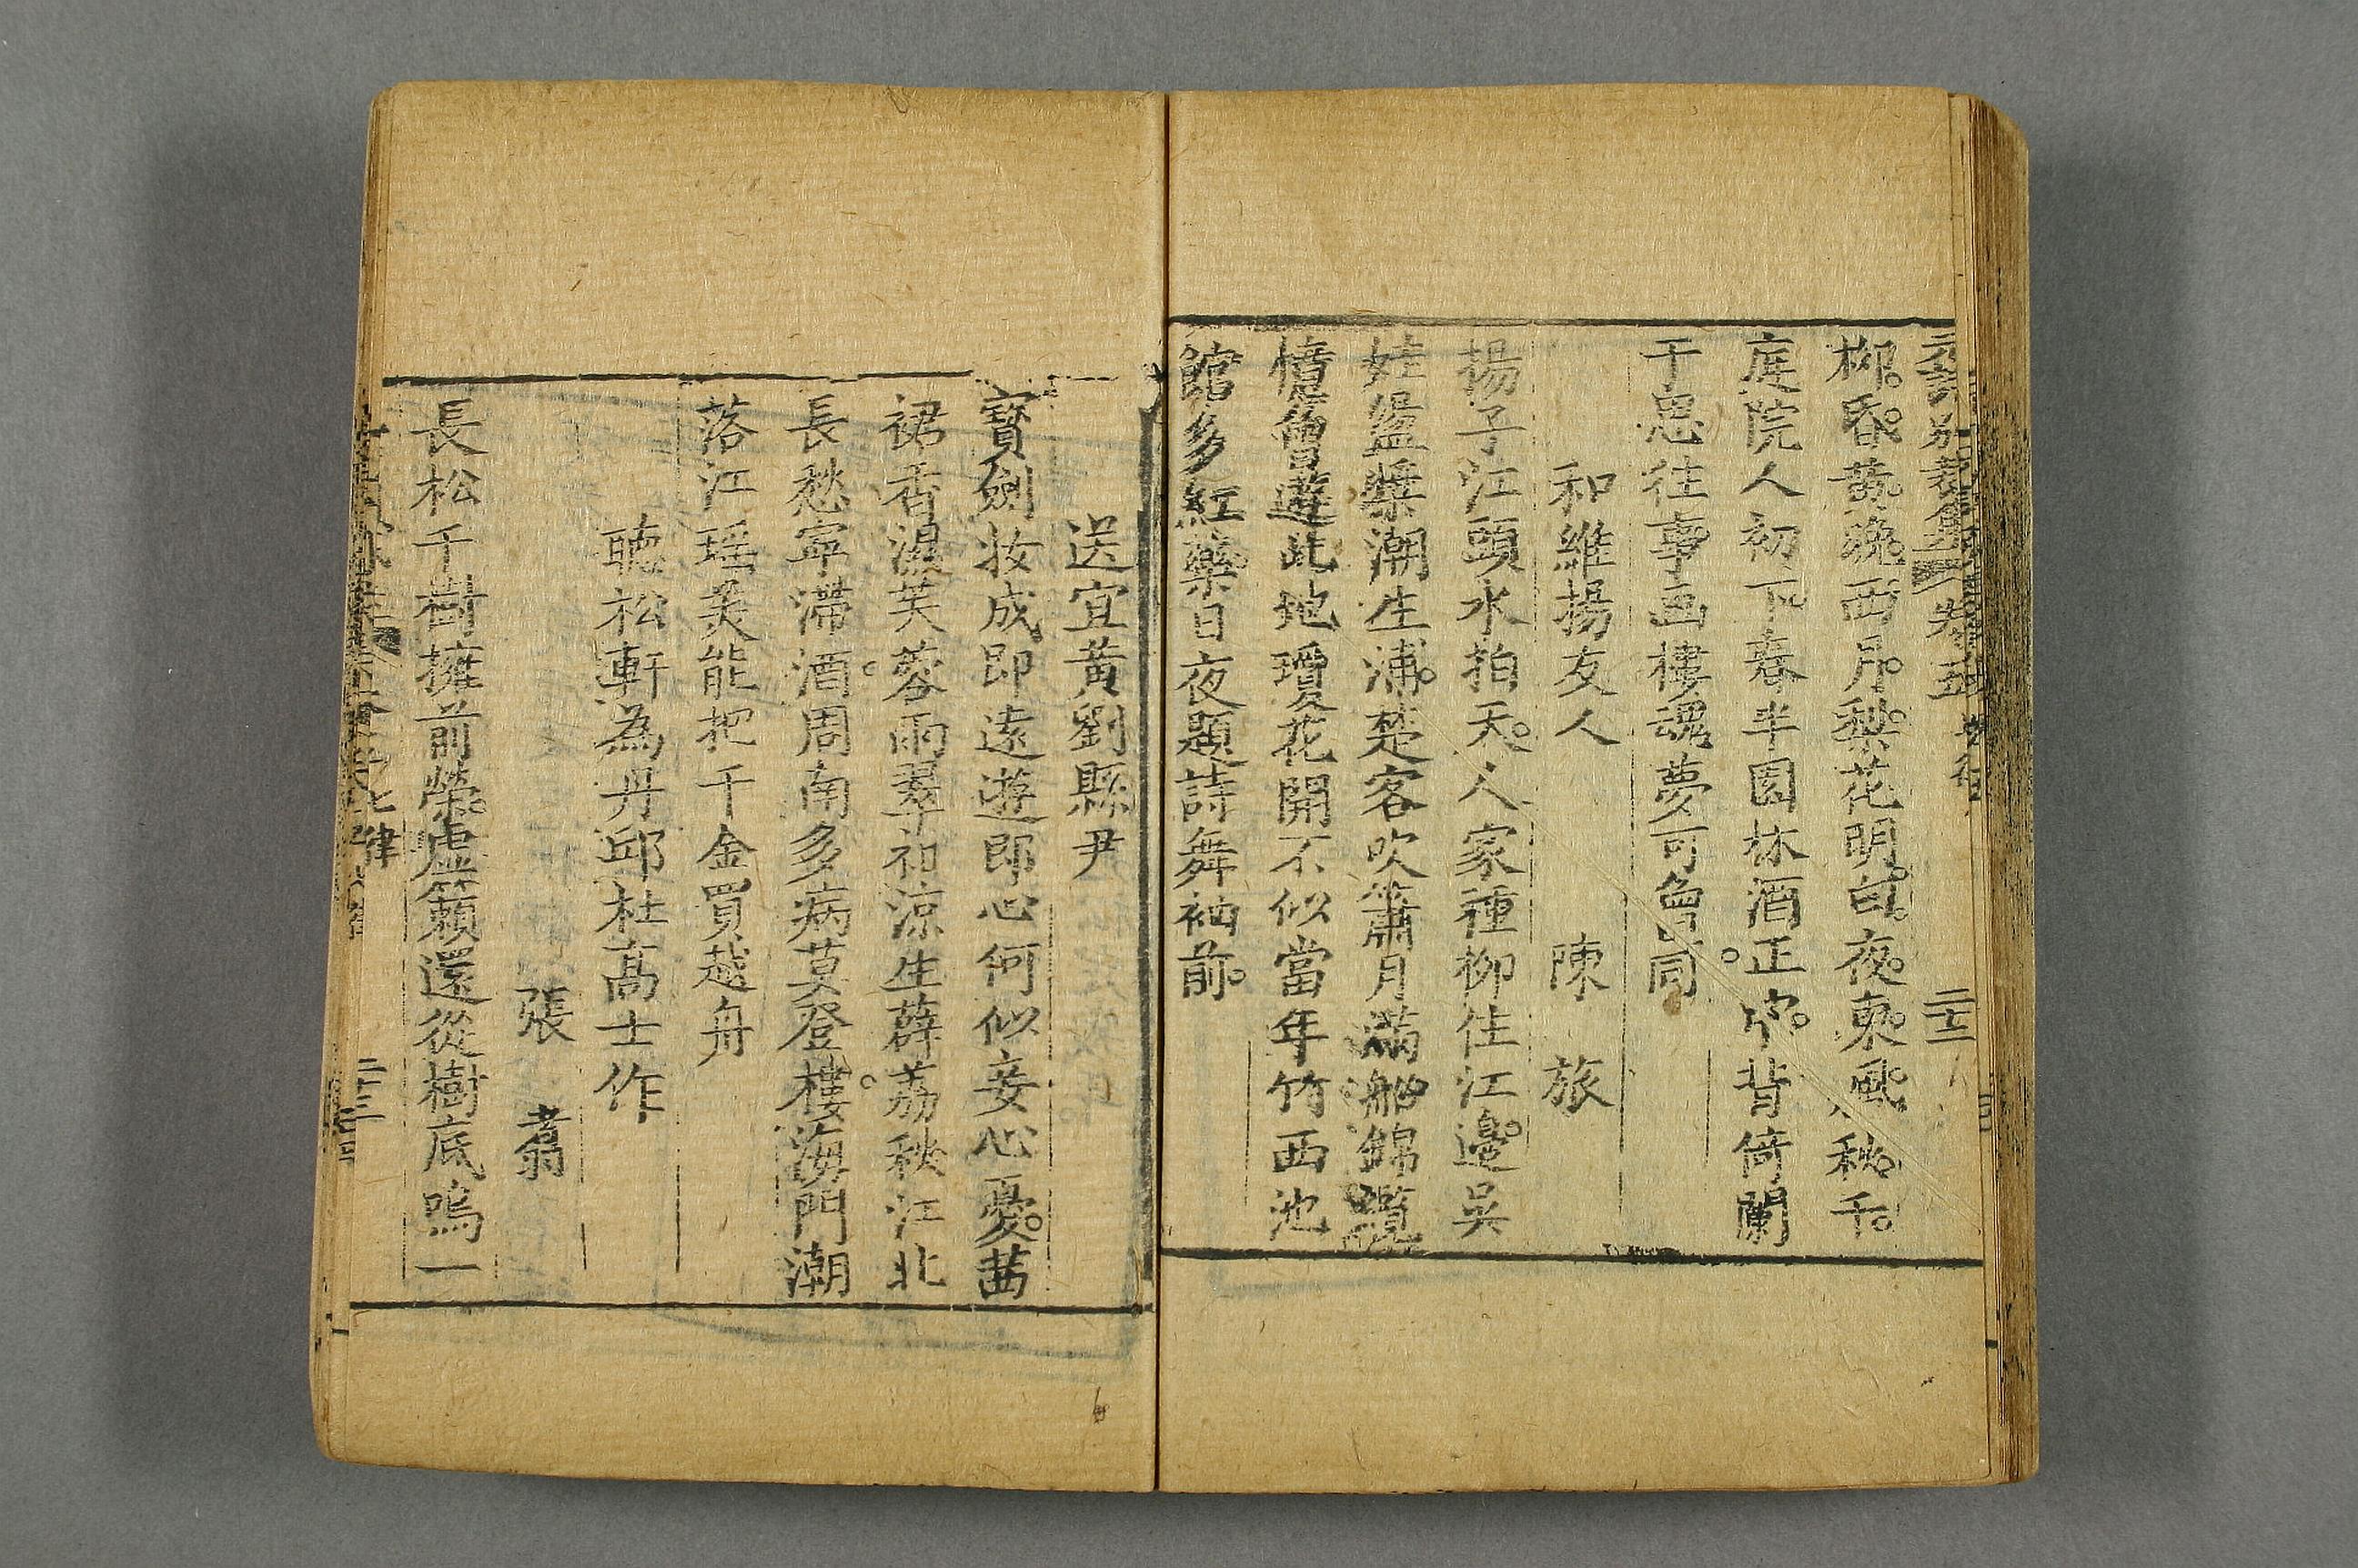 柳昏黃晚西月梨花明白夜東風秋千
庭院人初下春半園林酒正中背倚闌
干思往事画樓魂夢可曾同
和維揚友人
陳旅
揚子江頭水拍天人家種柳住江邊吳
娃盪槳潮生浦楚客吹簫月滿船錦纜
憶曾遊此地瓊花開不似當年竹西池
館多紅藥日夜題詩舞袖前
送宜黃劉縣尹
寶劍妝成即遠遊郎心何似妾心憂茜
裙香濕芙蓉雨翠袖涼生薜荔秋江北
長愁寧滯酒周南多病莫登樓海門潮
落江瑶美能把千金買越舟
聽松軒為丹邱杜高士作
張翥
長松千樹擁前榮虛籟還從樹底鳴一
二十三